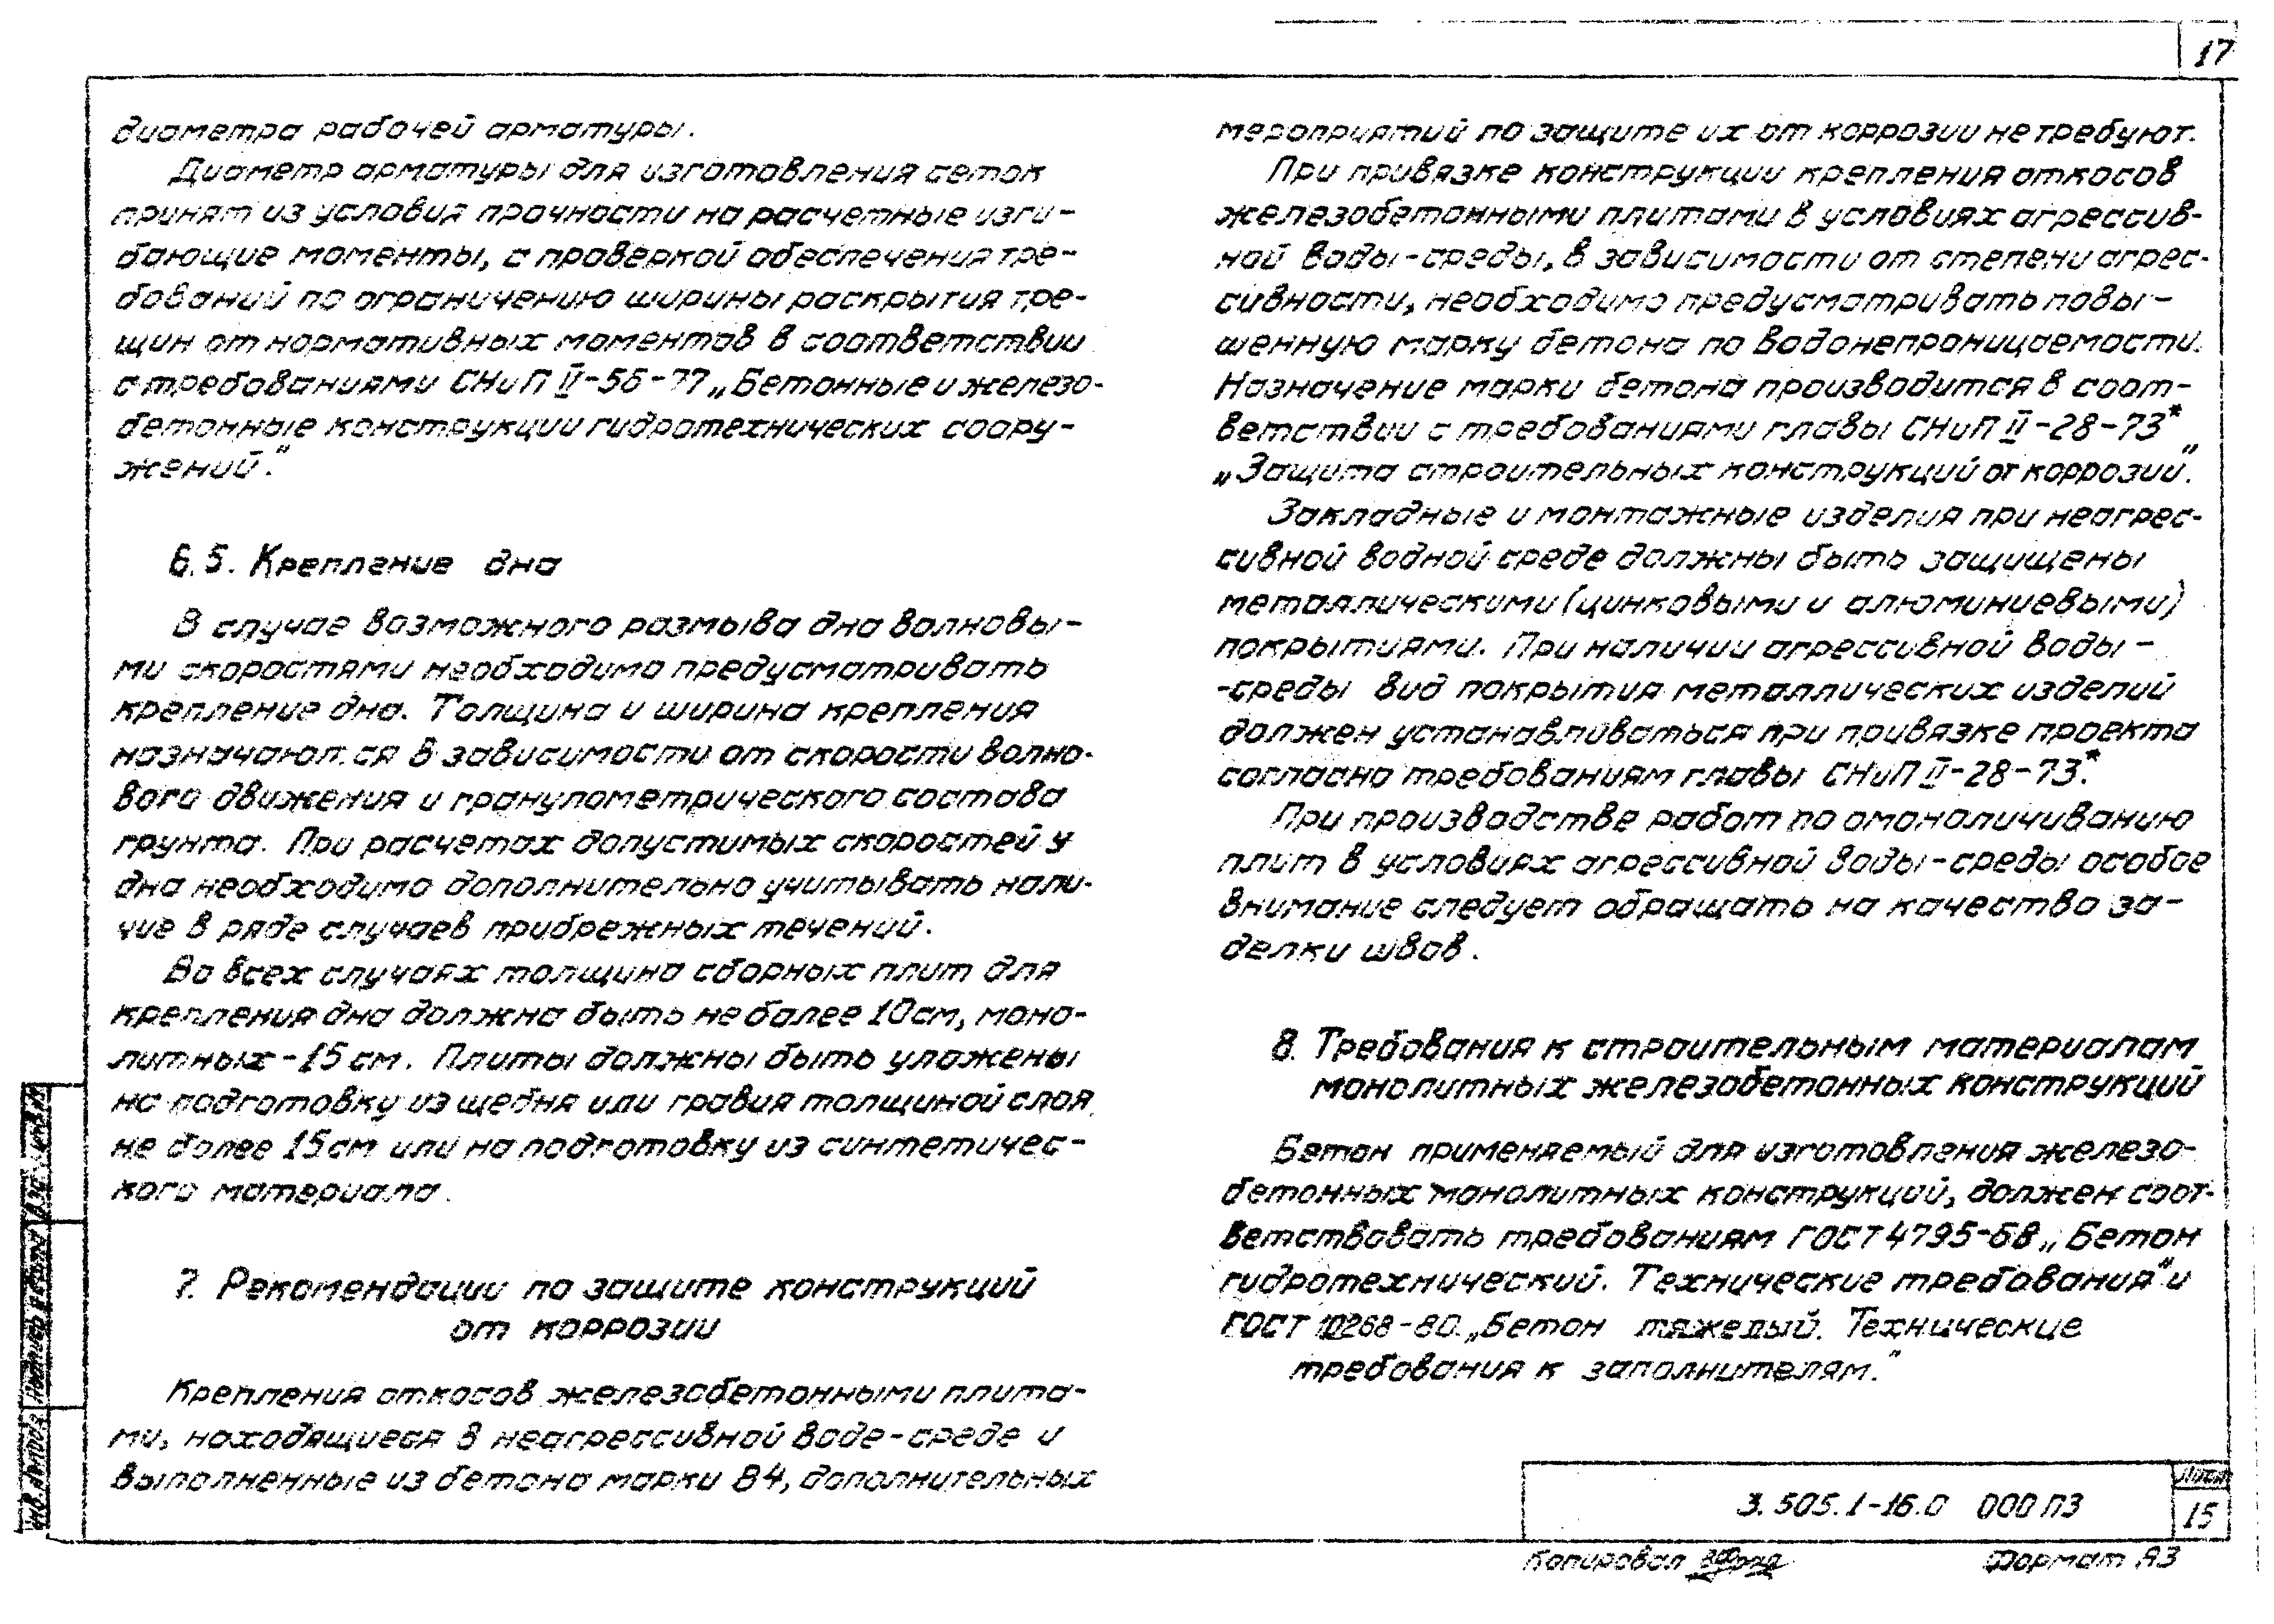 17
диаметра рабочей арматуры.
Диаметр арматуры для изготовления сеток
принят из условия прочности на расчетные изги-
бающие моменты, с проверкой обеспечения тре-
бований по ограничению ширины раскрытия тре-
щин от нормативных моментов в соответствии
с требованиями СНиП II-56-77 „Бетонные и железо-
бетонные конструкции гидротехнических соору-
жений."
6.5. Крепление дна
В случае возможного размыва дна волновы-
ми скоростями необходимо предусматривать
крепление дна. Толщина и ширина крепления
назначаются в зависимости от скорости волно-
вого движения и гранулометрического состава
грунта. При расчетах допустимых скоростей у
дна необходимо дополнительно учитывать нали-
чие в ряде случаев прибрежных течений.
Во всех случаях толщина сборных плит для
крепления дна должна быть не более 10см, моно-
литных-15 см. Плиты должны быть уложены
на подготовку из щебня или гравия толщиной слоя
не более 15см или на подготовку из синтетичес-
кого материала.
7. Рекомендации по защите конструкций
от коррозии
Крепления откосов железобетонными плита-
ми, находящиеся в неагрессивной воде-среде и
выполненные из бетона марки В4, дополнительных
мероприятий по защите их от коррозии не требуют.
При привязке конструкции крепления откосов
железобетонными плитами в условиях агрессив-
ной воды-среды, в зависимости от степени агрес-
сивности, необходимо предусматривать повы-
шенную марку бетона по водонепроницаемости.
Назначение марки бетона производится в соот-
ветствии с требованиями главы СНиП II-28-73*
„Защита строительных конструкций от коррозии".
Закладные и монтажные изделия при неагрес-
сивной водной среде должны быть защищены
металлическими (цинковыми и алюминиевыми)
покрытиями. При наличии агрессивной воды-
-среды вид покрытия металлических изделий
должен устанавливаться при привязке проекта
согласно требованиям главы СНиП II-28-73*.
При производстве работ по омоноличиванию
плит в условиях агрессивной воды-среды особое
внимание следует обращать на качество за-
делки швов.
8. Требования к строительным материалам
монолитных железобетонных конструкций
Бетон применяемый для изготовления железо-
бетонных монолитных конструкций, должен соот-
ветствовать требованиям ГОСТ 4795-68 „Бетон
гидротехнический. Технические требования" и
ГОСТ 10268-80 „Бетон тяжелый. Технические
требования к заполнителям."
Инв.№ подл. Подпись и дата Взам. инв.№
3.505.1-16.0 000 ПЗ
Лист
15
Копировал
Формат А3